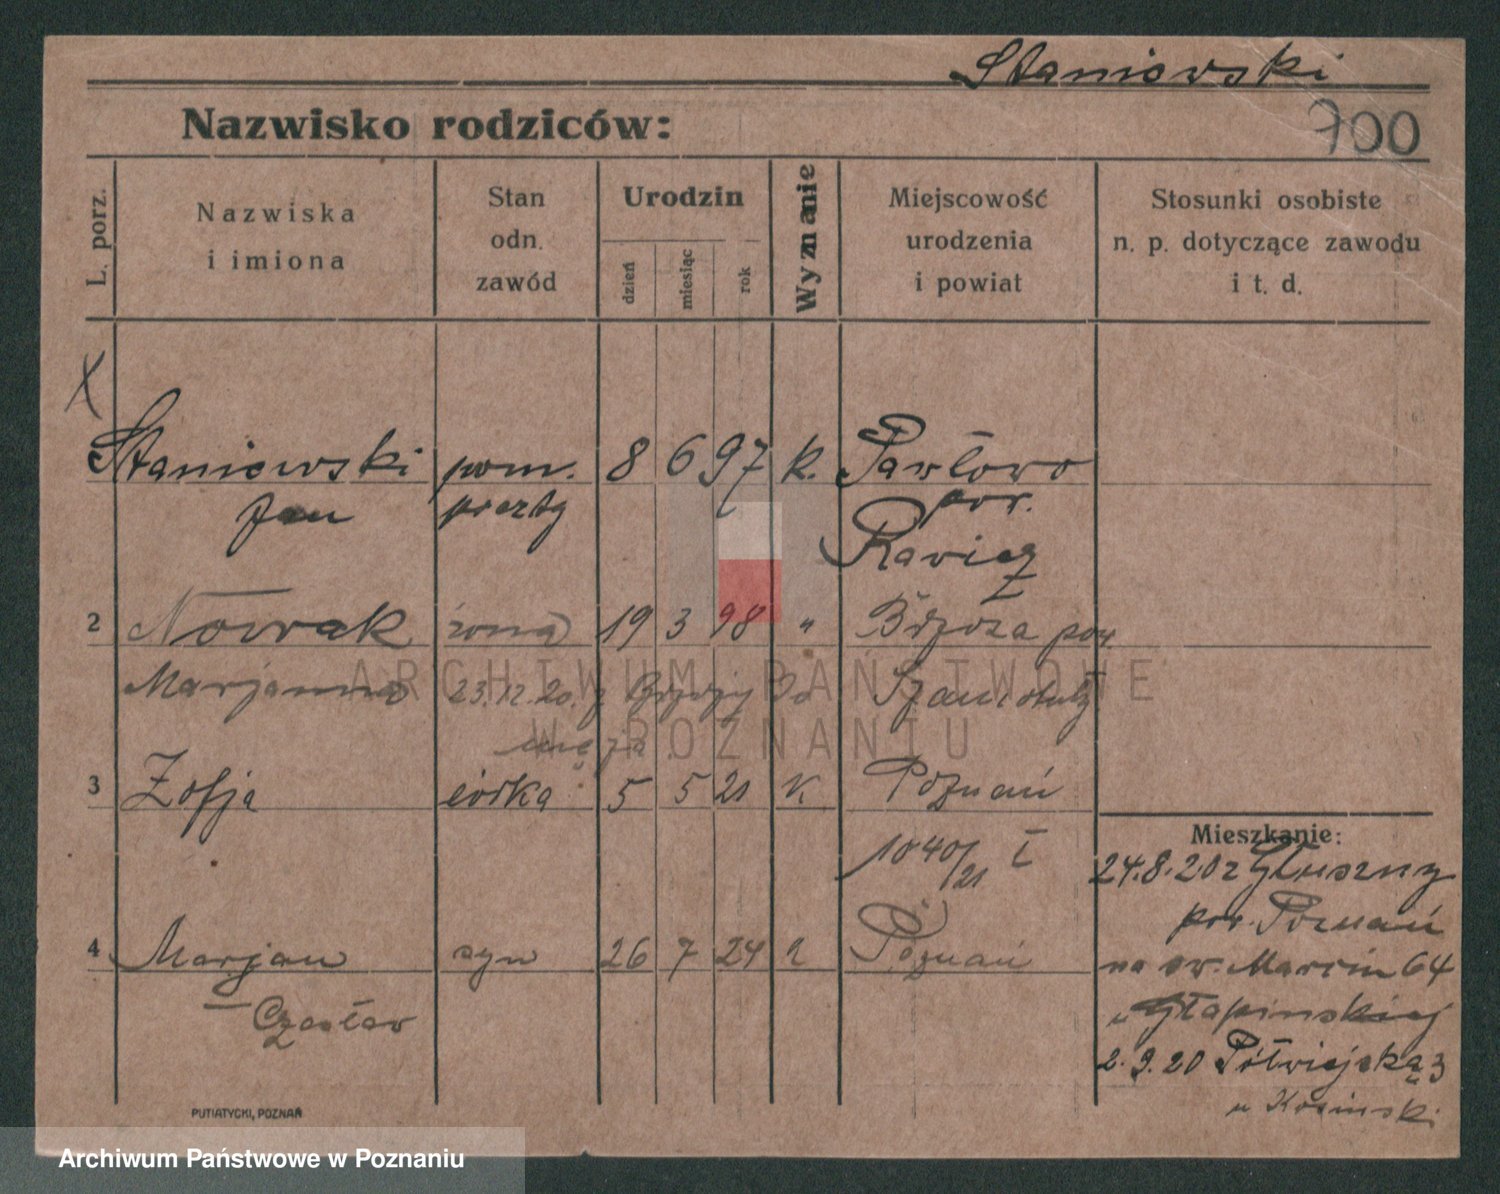 Staniewski
700
Nazwisko rodziców:
L. porz.
Nazwiska
i imiona
Stan
odn.
zawód
Urodzin
dzień
miesiąc
rok
Wyznanie
Miejscowość
urodzenia
i powiat
Stosunki osobiste
n. p. dotyczące zawodu
i t. d.
X
Staniewski pom. 8 6 97 k. Pawłowo
Jan poczty pow.
Rawicz
2 Nowak żona 19 3 98 " Brzoza pow.
Marjanna 23.12.20. z do Szamotuły
męża
3 Zofja córka 5 5 21 k Poznań
1040/21 I
4 Marjan syn 26 7 24 Poznań
Czesław
Mieszkanie:
24.8.20 z Głuszny
pow. Poznań
na św. Marcin 64
u Głapinskiej
2.9.20 Półwiejską 3
u Kosinski
PUTIATYCKI, POZNAŃ
ARCHIWUM PAŃSTWOWE
W POZNANIU
Archiwum Państwowe w Poznaniu